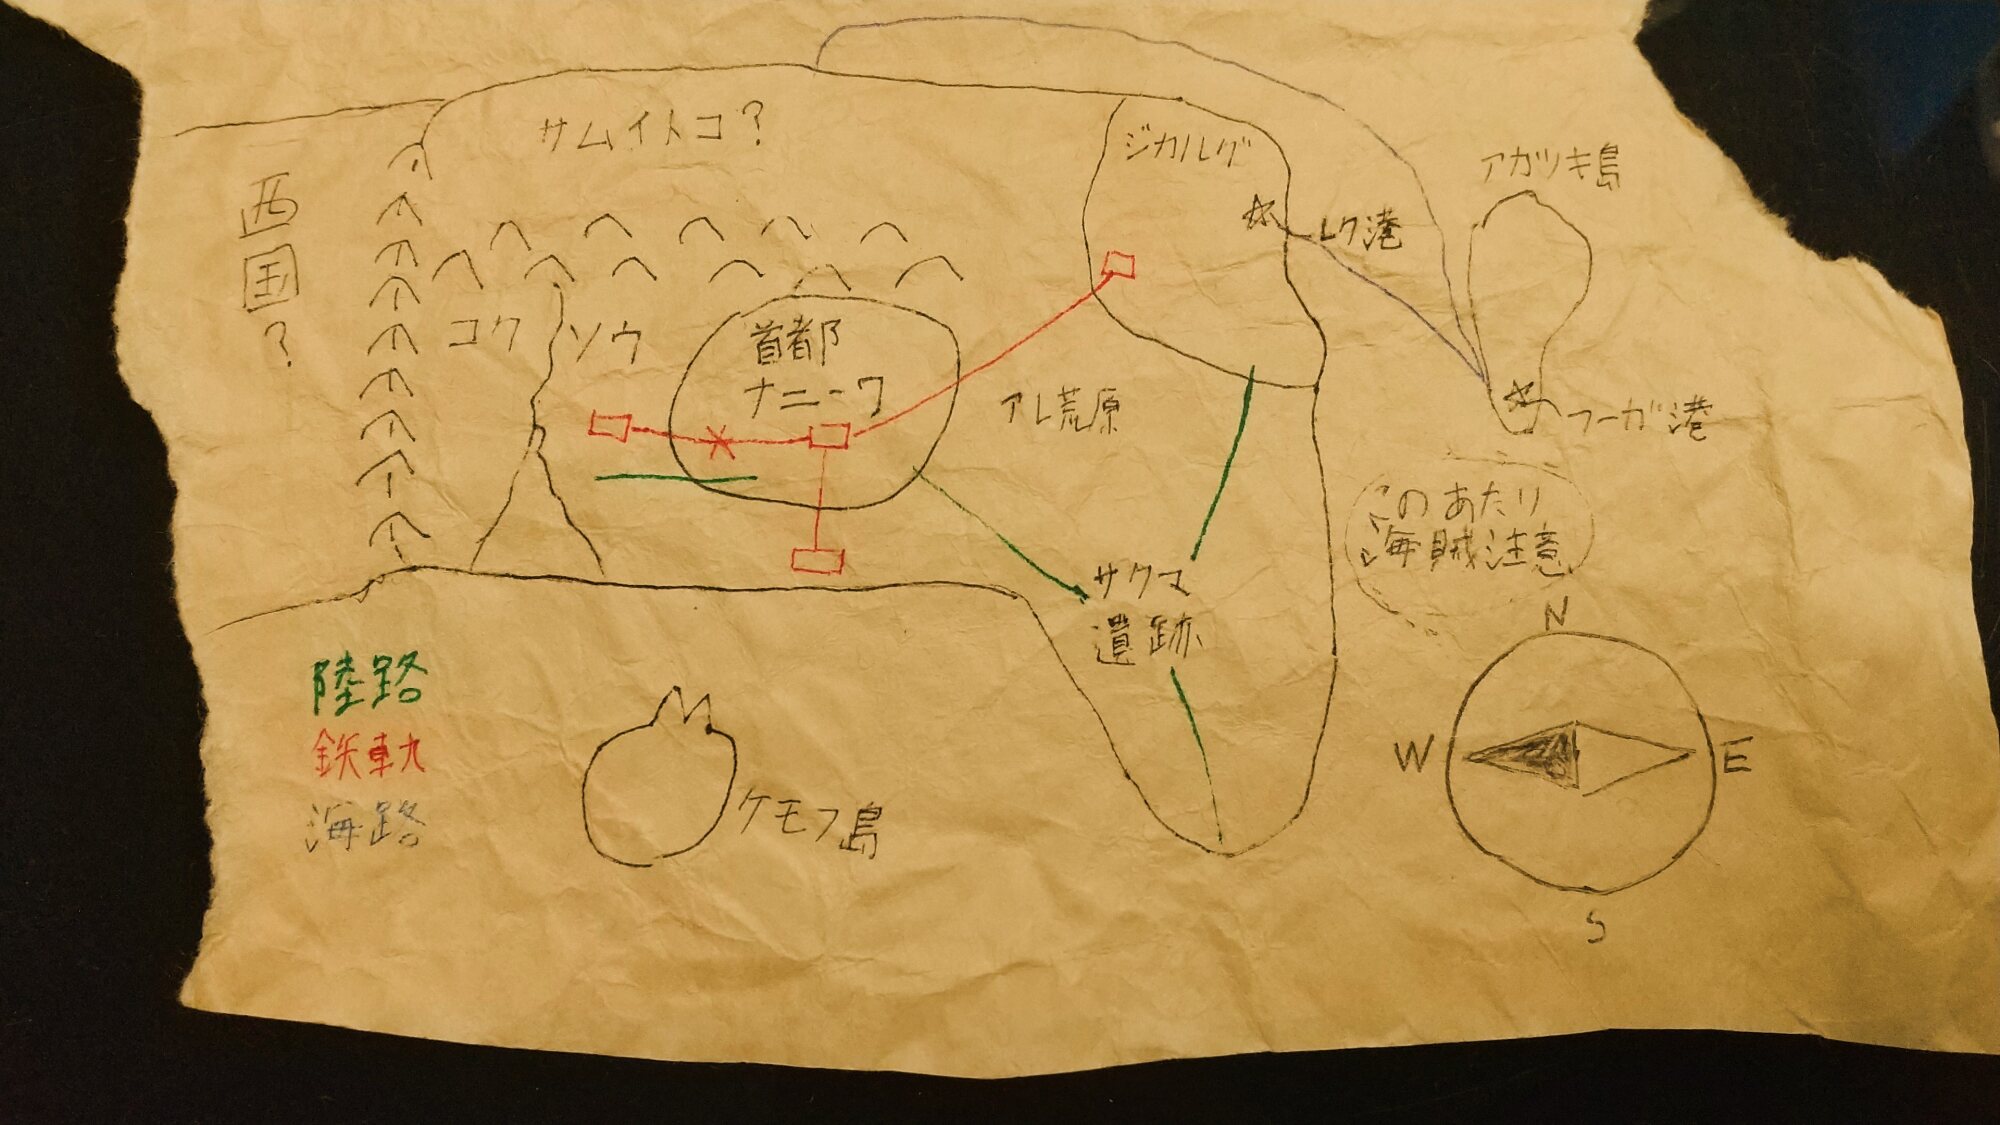 サムイトコ?
ジカルグ
アカツキ島
西国?
レク港
コク
ソウ
首都
ナニーワ
アレ荒原
フーガ港
このあたり
海賊注意
サクマ
遺跡
N
W
E
S
陸路
鉄軌
海路
ケモフ島